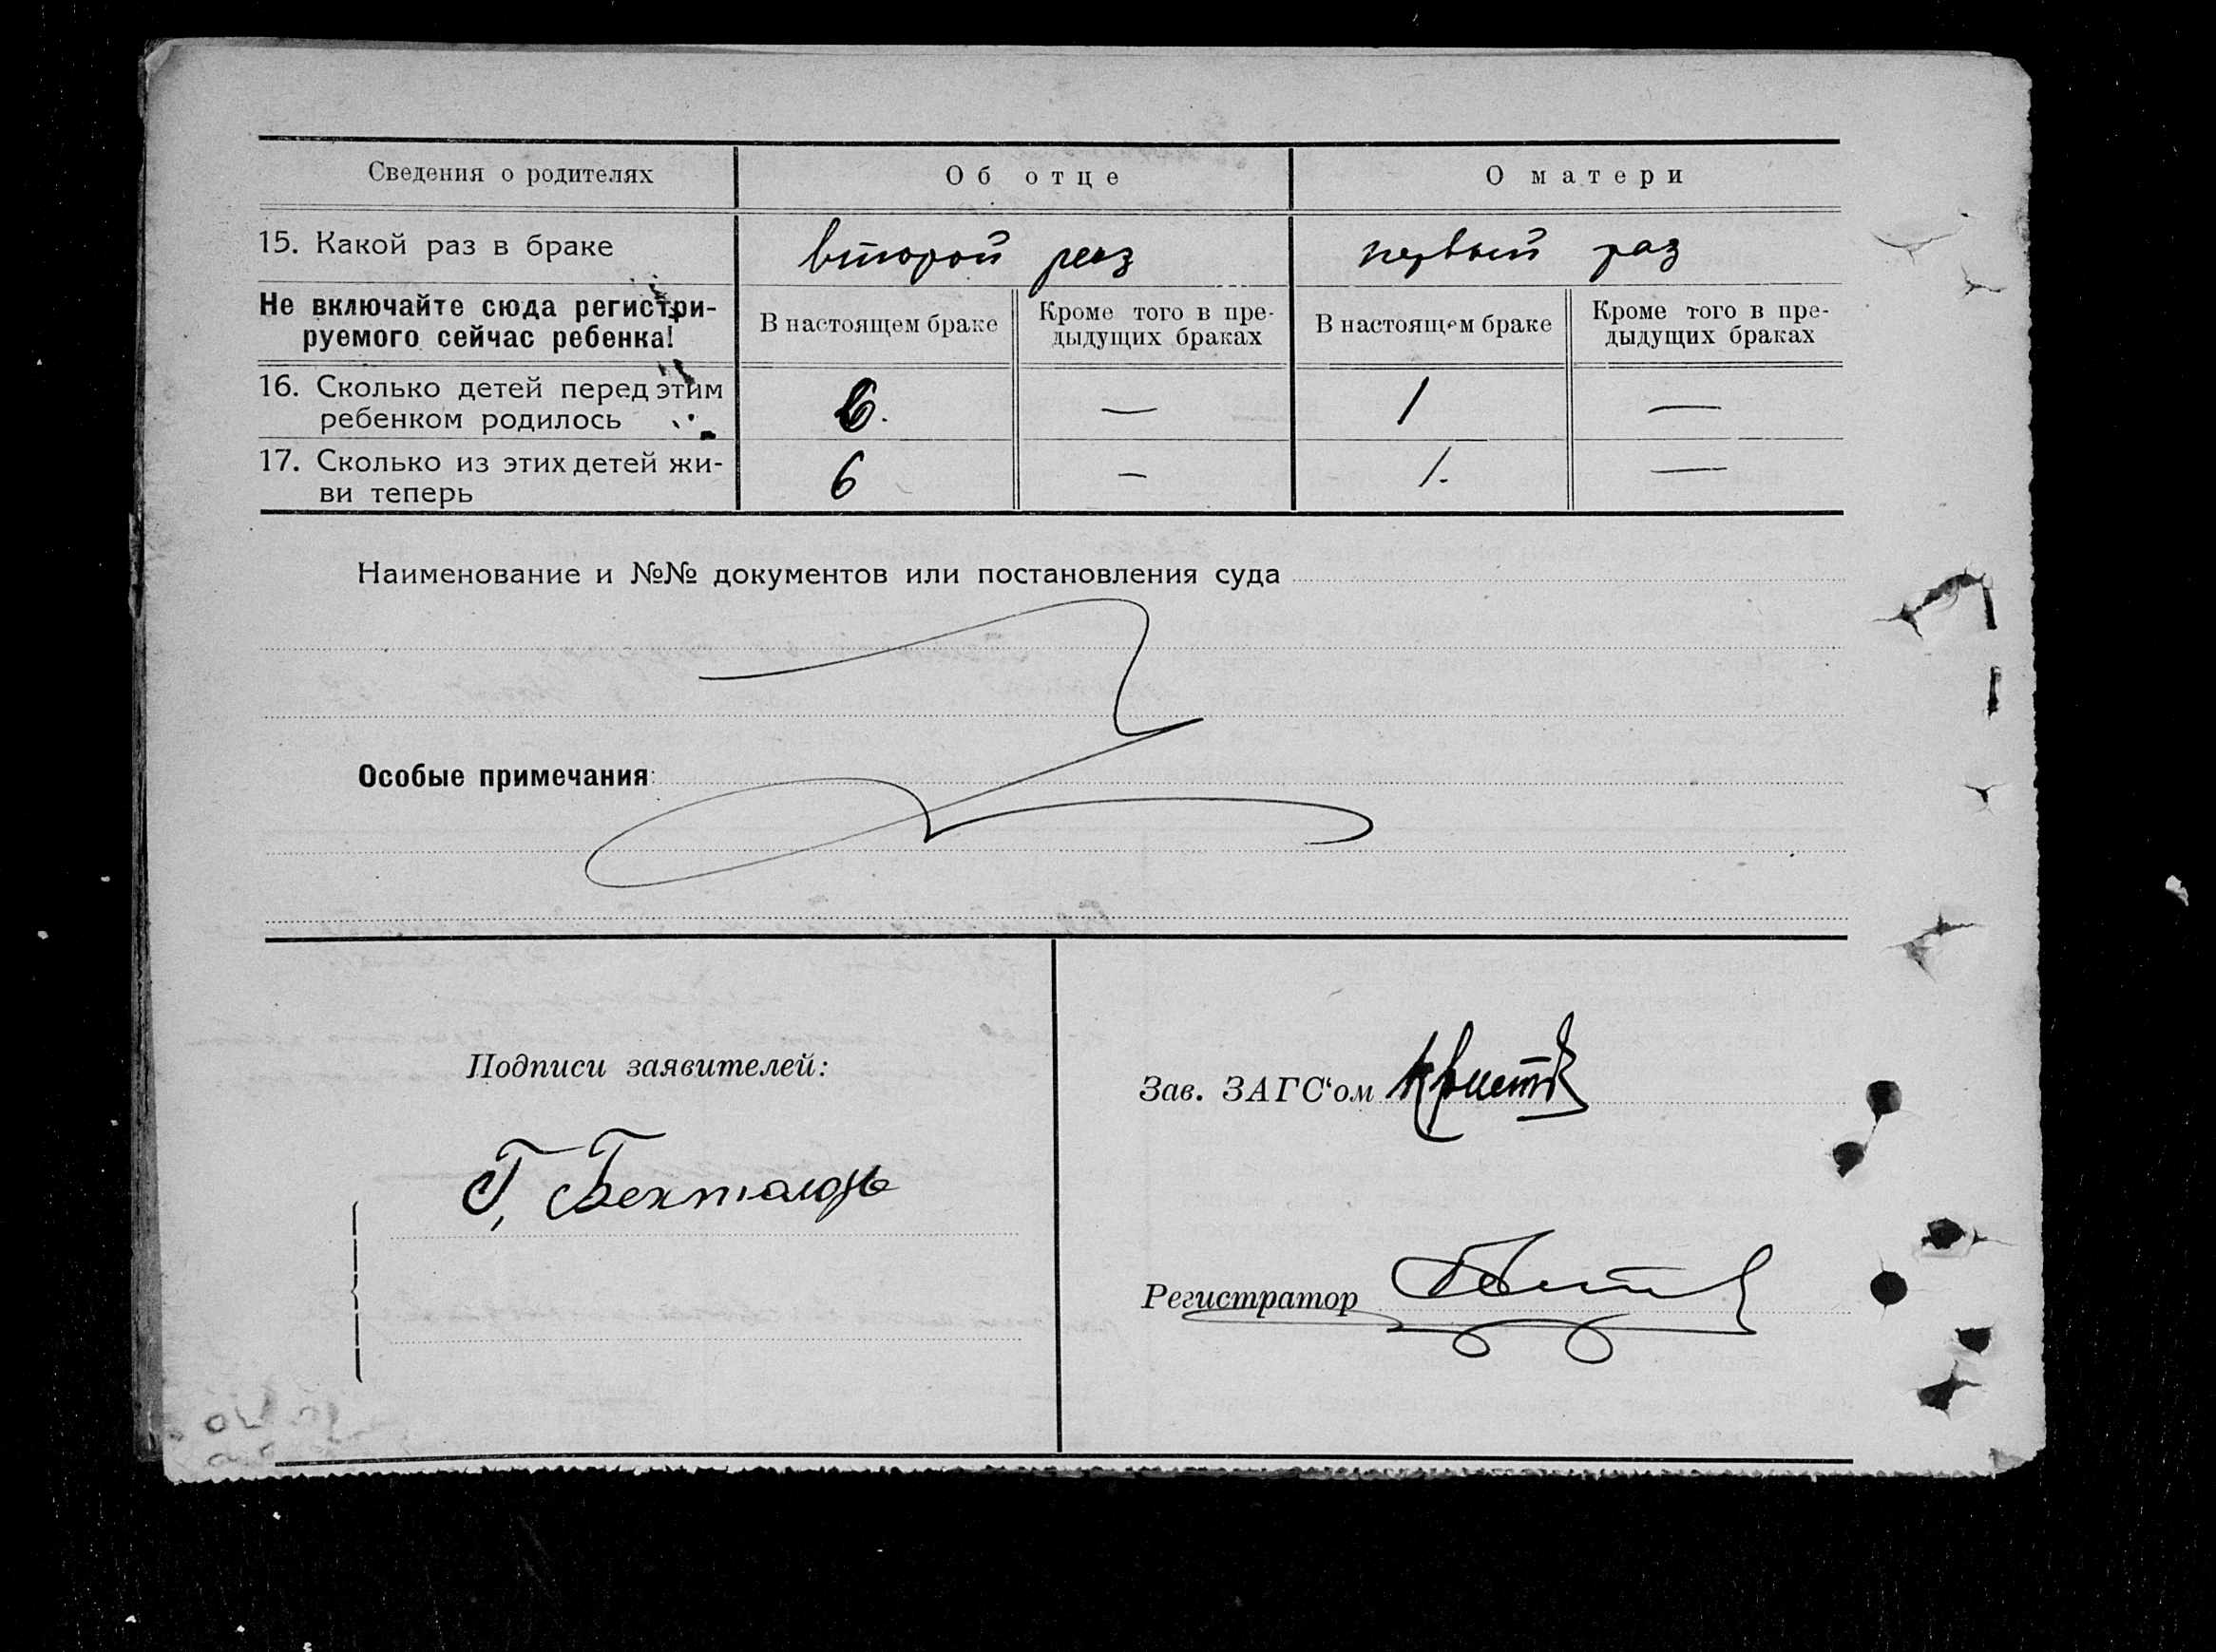 Сведения о родителях
Об отце
О матери
15. Какой раз в браке
второй раз
первый раз
Не включайте сюда регистри-
руемого сейчас ребенка!
В настоящем браке
Кроме того в пре-
дыдущих браках
В настоящем браке
Кроме того в пре-
дыдущих браках
16. Сколько детей перед этим
ребенком родилось
6.
—
1
—
17. Сколько из этих детей жи-
ви теперь
6
—
1.
—
Наименование и №№ документов или постановления суда
Особые примечания:
Подписи заявителей:
Зав. ЗАГС‘ом
Г,
Регистратор